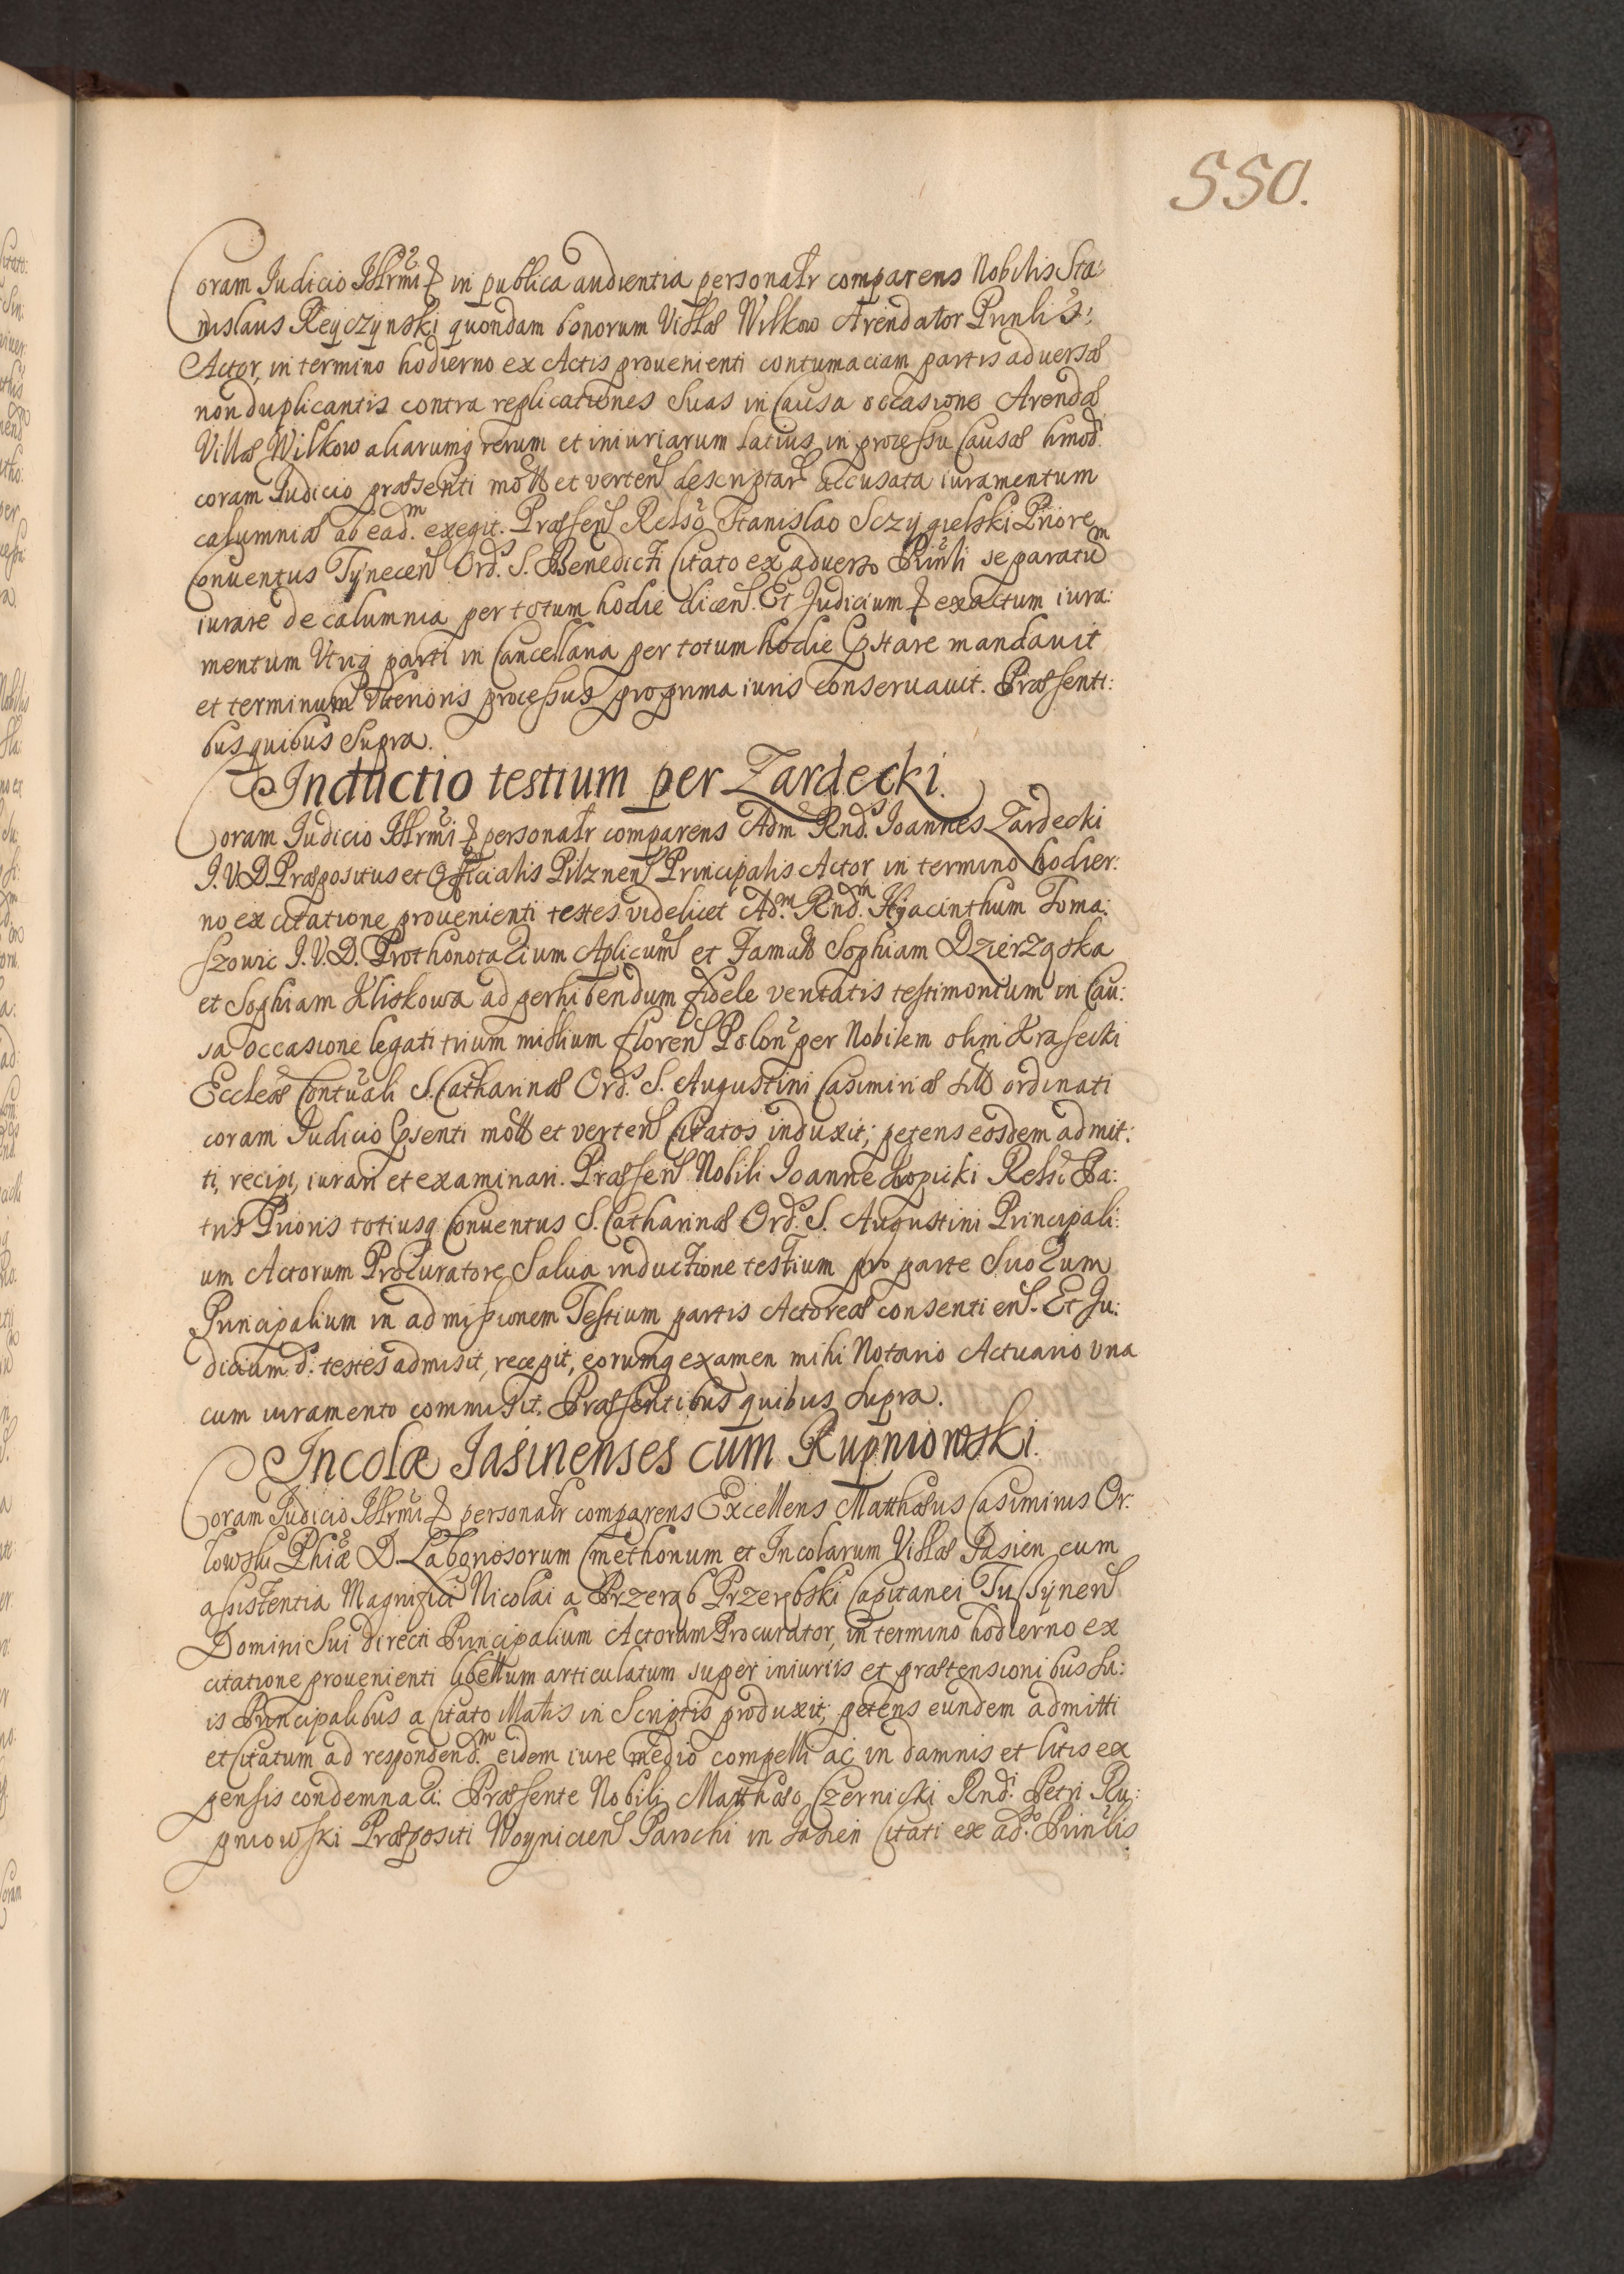 550.
Coram Judicio Illrmi et in publica audientia personalr comparens Nobilis Sta:
nislaus Reyczynski quondam bonorum Villæ Wilkow Arendator Prinlis,
Actor, in termino hodierno ex Actis prouenienti contumaciam partis aduersæ
non duplicantis contra replicationes suas in Causa occasione Arendæ
Villæ Wilkow aliarumq rerum et iniuriarum latius in processu Causæ hmoď.
coram Judicio præsenti mott et verten descriptar accusata iuramentum
calumniæ ab eadm. exegit. Præsen Relso Stanislao Sczygielski Priore
Conuentus Tynecen Ords. S. Benedicti Citato ex aduerso Prinli se paratum
iurare de calumnia per totum hodie dicen. Et Judicium exactum iura:
mentum Vtriq parti in Cancellaria per totum hodie pstare mandauit
et terminum Vlterioris processus pro prima iuris conseruauit. Præsenti:
bus quibus Supra.
Inductio testium per Zardecki.
Coram Judicio Illrmi et personalr comparens Adm Rnds. Joannes Zardecki
J. V. D. Præpositus et Officialis Pilznen Principalis Actor in termino hodier:
no ex citatione prouenienti testes videlicet Adm. Rndm. Hyacinthum Toma:
szowic J. V. D. Prothonotarium Aplicum et Famatt Sophiam Dzierząska
et Sophiam Kliskowa ad perhibendum fidele veritatis testimonium in Cau:
sa occasione legati trium millium floren Polon per Nobilem olim Krasecki
Eccleæ Contuali S. Catharinæ Ords. S. Augustini Casimiriæ ordinati
coram Judicio psenti mott et verten Citatos induxit; petens eosdem admit:
ti, recipi, iurari et examinari. Præsen Nobili Joanne Kopicki Relsi Pa:
tris Prioris totiusq Conuentus S. Catharinæ Ords. S. Augustini Principali:
um Actorum Procuratore Salua inductione testium pro parte Suorum
Principalium in admissionem Testium partis Actoreæ consentien. Et Ju:
dicium d: testes admisit, recepit, eorumq examen mihi Notario Actuario vna
cum iuramento commisit. Præsentibus quibus Supra.
Incolæ Jasinenses cum Rupniowski.
Coram Judicio Illrmi et personalr comparens Excellens Matthæus Casimirus Or:
lowski Phiæ D. Laboriosorum Cmethonum et Incolarum Villæ Jasien cum
assistentia Magnifici Nicolai a Przerąb Przerębski Capitanei Tussynen
Domini Sui directi Principalium Actorum Procurator, in termino hodierno ex
citatione prouenienti libellum articulatum super iniuriis et prætensionibus su:
is Principalibus a Citato Illatis in Scriptis produxit, petens eundem admitti
et Citatum ad respondendm. eidem iure medio compelli ac in damnis et litis ex
pensis condemnari. Præsente Nobili Matthæo Czernicki Rndi. Petri Ru:
pniowski Præpositi Woynicien Parochi in Jasien Citati ex ado. Prinlis